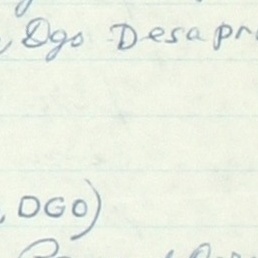 , Dgo Desapr
, DGO)